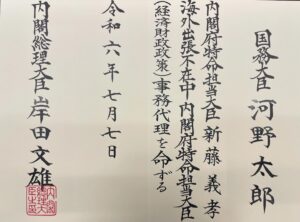 国務大臣 河野太郎
内閣府特命担当大臣 新藤義孝
海外出張不在中 内閣府特命担当大臣
(経済財政政策)事務代理を命ずる
令和六年七月七日
内閣総理大臣 岸田文雄